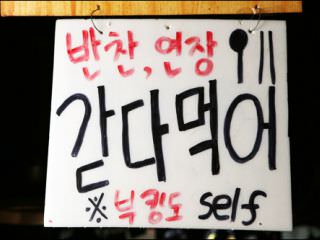 반찬, 연장
갇다먹어
※ 부킹도 self